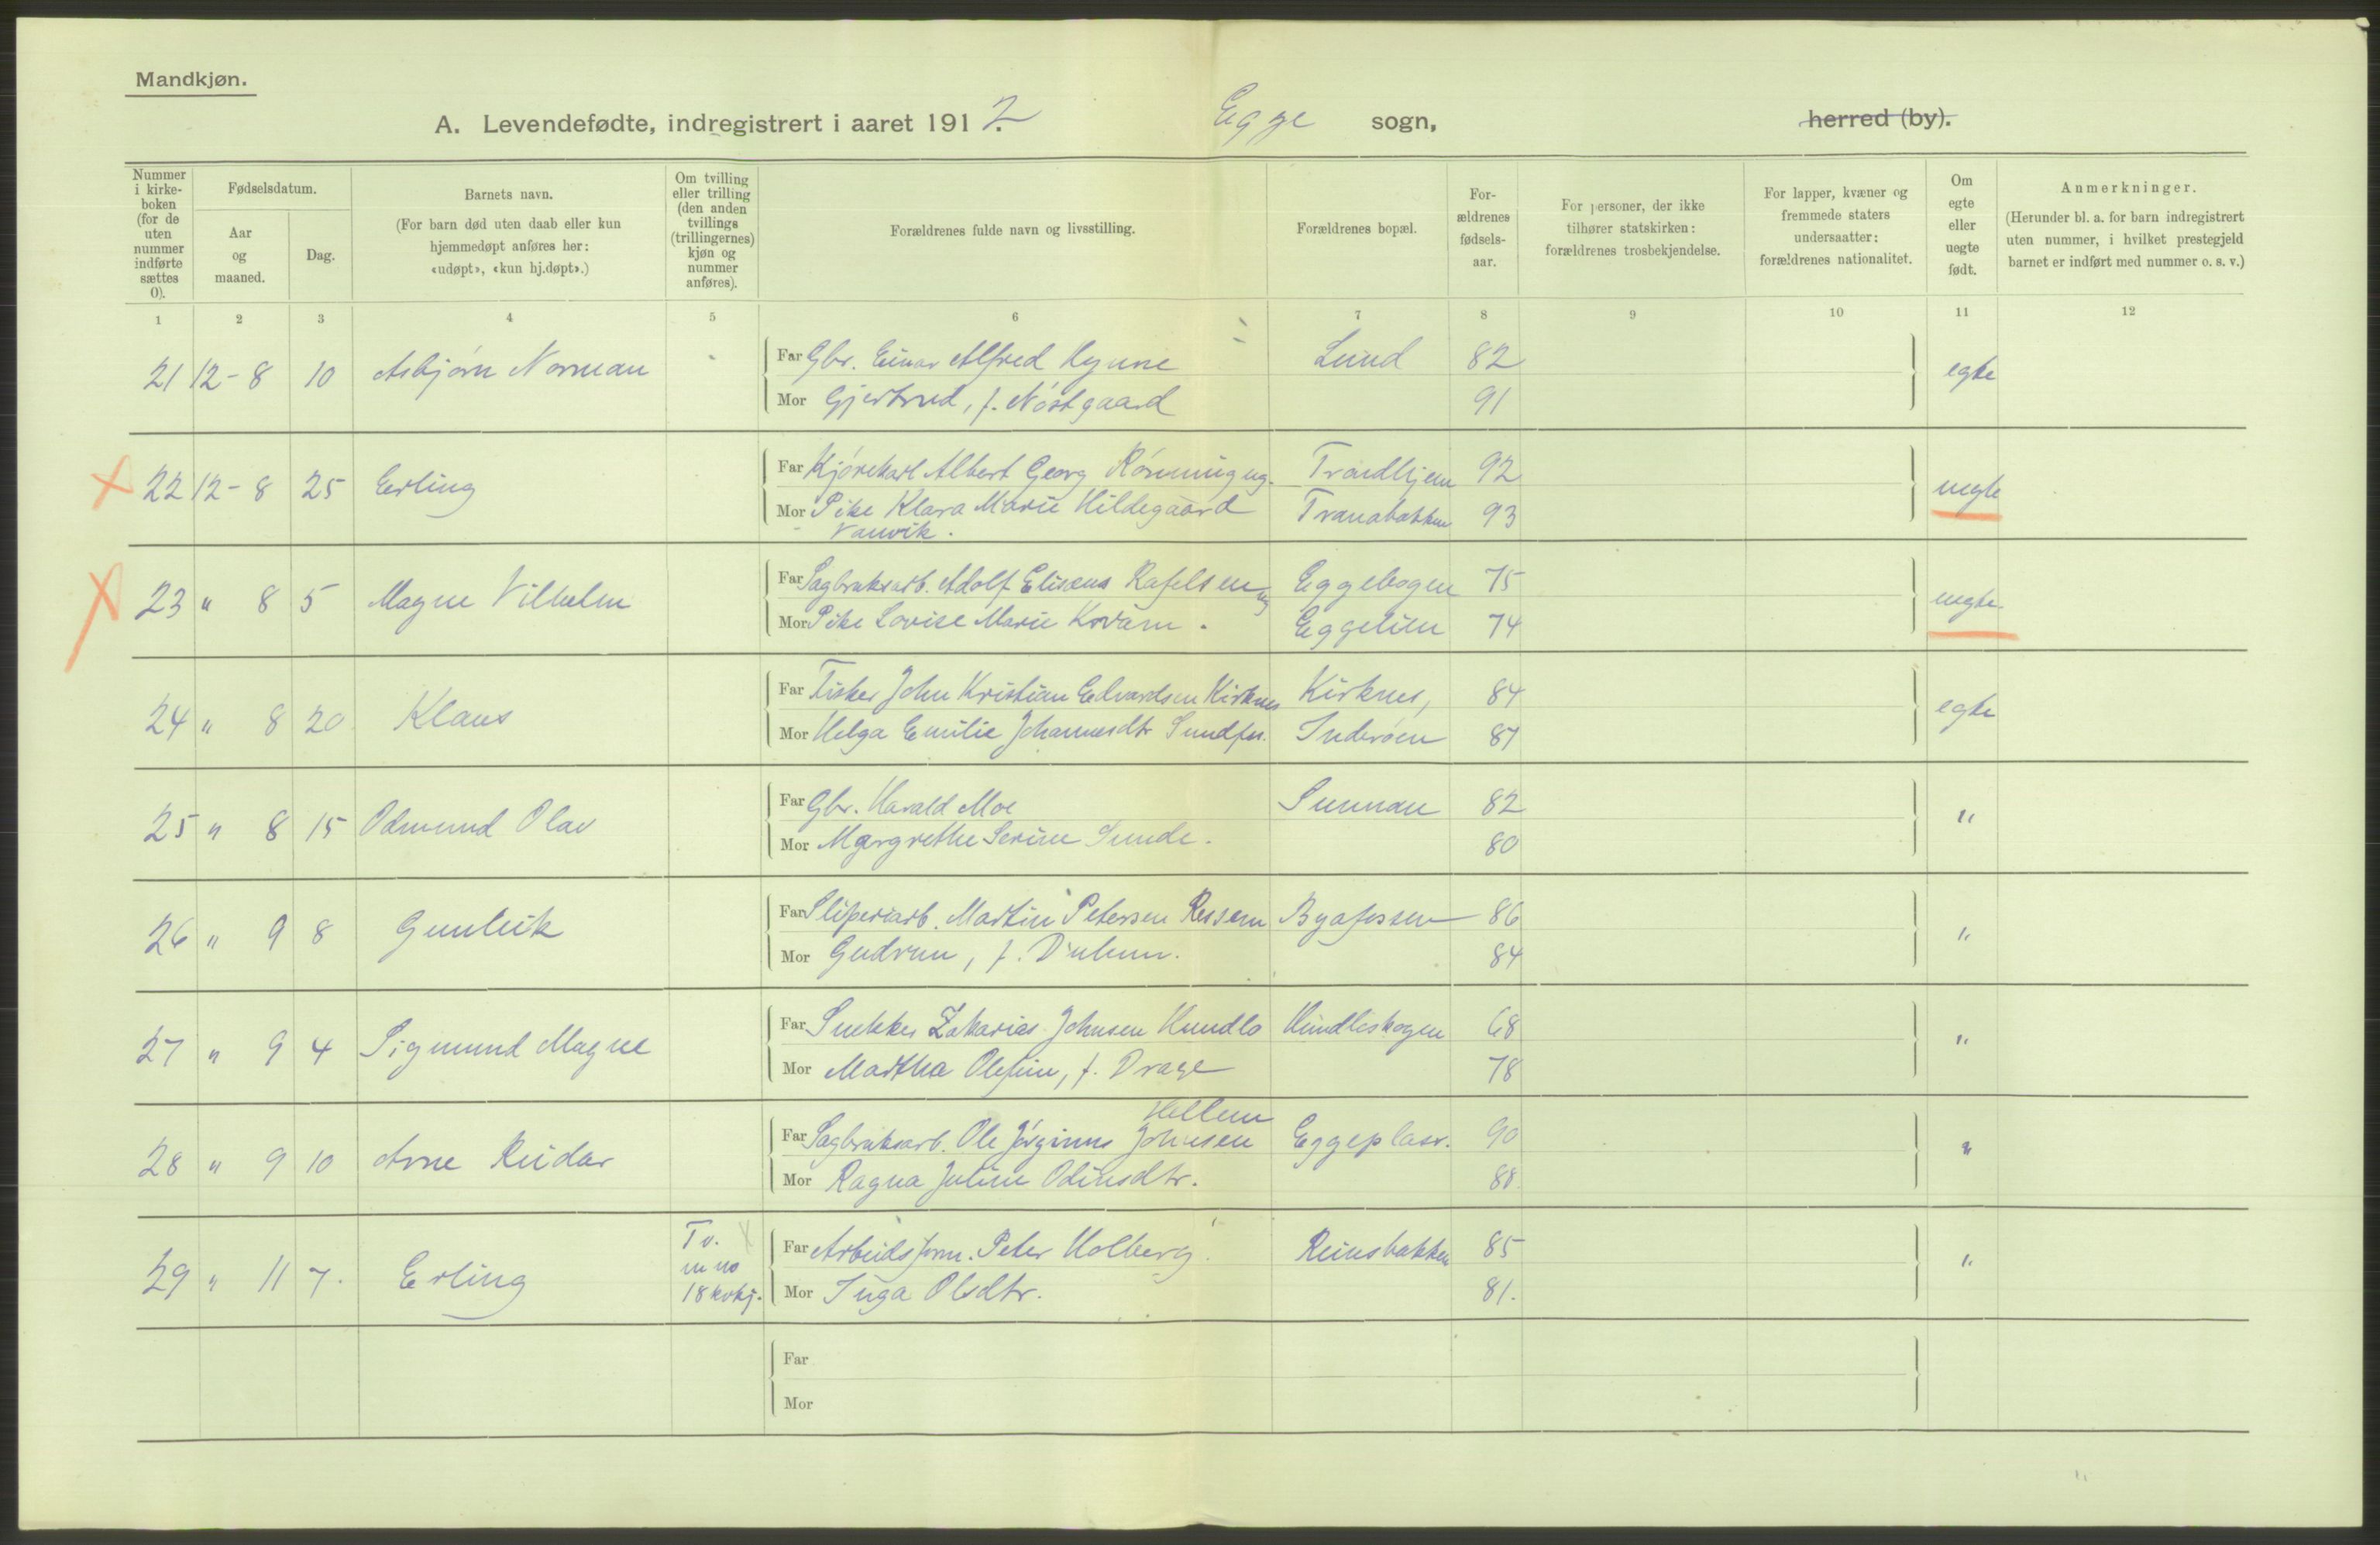 Mandkjøn.
A. Levendefødte, indregistrert i aaret 1912. Egge sogn, herred (by).
Nummer i kirke-boken (for de uten nummer indførte sættes 0).
Fødselsdatum.
Aar og maaned.
Dag.
Barnets navn.
(For barn død uten daab eller kun hjemmedøpt anføres her: «udøpt», «kun hj.døpt».)
Om tvilling eller trilling (den anden tvillings (trillingernes) kjøn og nummer anføres).
Forældrenes fulde navn og livsstilling.
Forældrenes bopæl.
For-ældrenes fødsels-aar.
For personer, der ikke tilhører statskirken: forældrenes trosbekjendelse.
For lapper, kvæner og fremmede staters undersaatter: forældrenes nationalitet.
Om egte eller uegte født.
Anmerkninger.
(Herunder bl. a. for barn indregistrert uten nummer, i hvilket prestegjeld barnet er indført med nummer o. s. v.)
1 2 3 4 5 6 7 8 9 10 11 12
21 12-8 10 Asbjørn Norman Far Gbr. Einar Alfred Hynne Lund 82 egte
Mor Gjertrud, f. Nóstgaard 91
22 12-8 25 Erling Far Kjórekarl Albert Georg Rónning ug. Trondhjem 92 uegte
Mor Pike Klara Marie Hildegaard Tranabakken 93
Vanvik.
23 " 8 5 Magne Vilhelm Far Sagbruksarb. Adolf Elisæus Rafelsen ug Eggebogen 75 uegte.
Mor Pike Lovise Marie Kvam. Eggelien 74
24 " 8 20 Klaus Far Fisker John Kristian Edvardsen Kirknes Kirknes, 84 egte
Mor Helga Emilie Johannesdtr Sundfær. Inderóen 87
25 " 8 15 Odmund Olav Far Gbr. Harald Moe Sunnan 82 "
Mor Margrethe Serine Sunde. 80
26 " 9 8 Gunleik Far Sliperiarb. Martin Petersen Ressem Byafossen 86 "
Mor Gudrun, f. 84
27 " 9 4 Sigmund Magne Far Snekker Zakarias Johnsen Hundlo Hundloskogen 68 "
Mor Martha Olefine, f. Drage 78
Hellem
28 " 9 10 Arne Reidar Far Sagbruksarb. Ole Jørginus Johnsen Eggeplasr. 90 "
Mor Ragna Juline Odinsdtr. 88.
29 " 11 7. Erling Tv. m no 18 kvkj. Far Arbeidsform. Peter Holberg. Reinsbakken 85 "
Mor Inga Olsdtr. 81.
Far
Mor